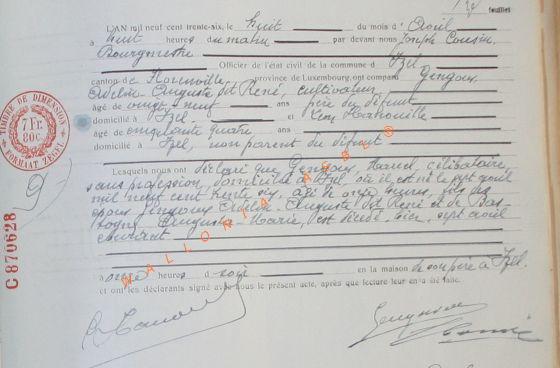 feuillet
L'AN mil neuf cent trente-six, le huit du mois d'Avril
à huit heures du matin par devant nous Joseph Cousin
Bourgmestre
Officier de l'état civil de la commune d'Izel
canton de Florenville province de Luxembourg, ont comparu Gengoux
Auguste dit René, cultivateur
âgé de neuf ans père du défunt
domicilié à Izel et Léon
âgé de cinquante quatre ans
domicilié à Izel, non parent du défunt
Lesquels nous ont déclaré que Gengoux Marcel, célibataire,
sans profession, domicilié à Izel, où il est né le sept avril
mil neuf cent trente six, âgé de onze heures, fils des
époux Gengoux Auguste dit René et de
Marie, est décédé hier, sept avril
courant
à onze heures du soir en la maison de son père à Izel.
et ont les déclarants signé avec nous le présent acte, après que lecture leur en a été faite.
TIMBRE DE DIMENSION
7 Fr.
80c.
FORMAAT ZEGEL
C 870628
WALLONIA ASBUS